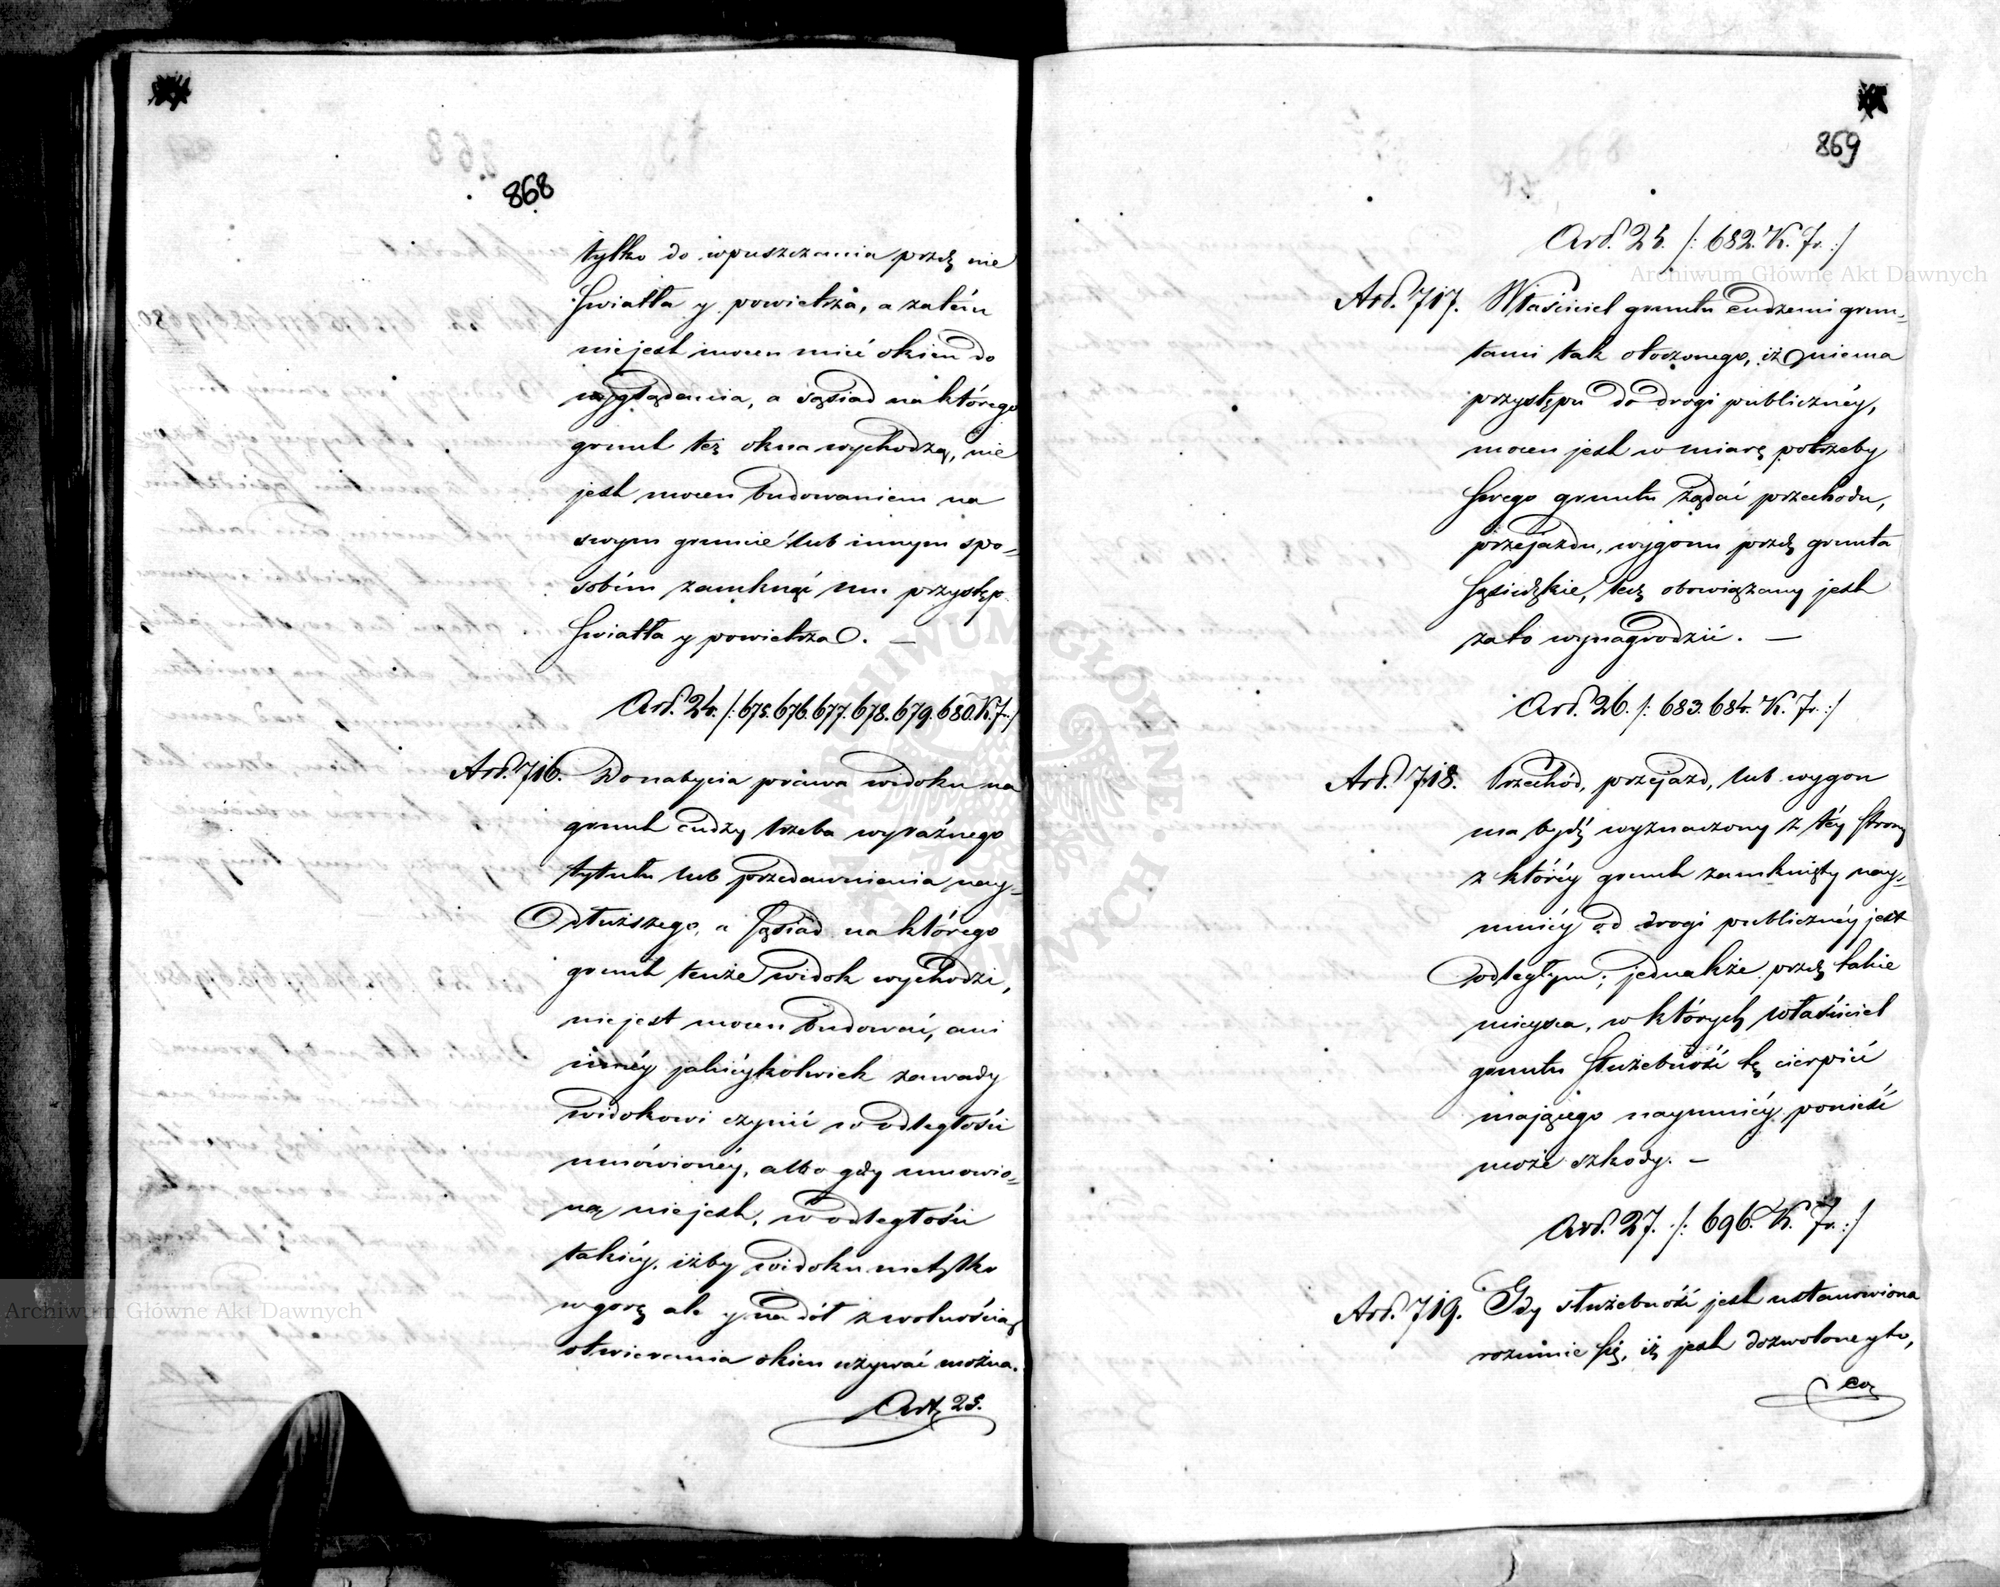 868
tylko do wpuszczania przez nie
Światła y powietrza, a zatém
niejest mocen mieć okien do
wyglądania, a sąsiad na którego
grunt też okna wychodzą, nie
jest mocen budowaniem na
swym gruncie lub innym spo-
sobém zamknąć mu przystęp
Światła y powietrza. —
Art. 24. /: 675. 676. 677. 678. 679. 680. K. Fr. :/
Art. 716. Do nabycia prawa widoku na
grunt cudzy trzeba wyraźnego
tytułu lub przedawnienia nay-
dłuższego, a Sąsiad na którego
grunt tenże widok wychodzi,
niejest mocen budować, ani
innéy jakiéykolwiek zawady
widokowi czynić w odległości
umówionéy, albo gdy umowio-
ną niejest, w odległości
takiéy, iżby widoku nietylko
w górę ale y na dół z wolnością
otwierania okien używać można.
Art. 25.
869
Art. 25. /: 682. K. Fr. :/
Art. 717. Właściciel gruntu cudzemi grun-
tami tak otoczonego, iż niema
przystępu do drogi publicznéy,
mocen jest w miarę potrzeby
Swego gruntu żądać przechodu,
przejazdu, wygonu przez grunta
Sąsiedzkie, lecz obowiązany jest
za to wynagrodzić. —
Art. 26. /: 683. 684. K. Fr. :/
Art. 718. Przechód, przejazd, lub wygon
ma bydź wyznaczony z téy Strony
z któréy grunt zamknięty nay-
mniéy od drogi publicznéy jest
odległym; jednakże przez takie
mieysca, w których właściciel
gruntu Służebność tę cierpieć
mającego naymniéy ponieść
może szkody. —
Art. 27. /: 696. K. Fr. :/
Art. 719. Gdy służebność jest ustanowiona
rozumie Się, iż jest dozwolone y to,
co
Archiwum Główne Akt Dawnych
Archiwum Główne Akt Dawnych
ARCHIWUM GŁÓWNE AKT DAWNYCH